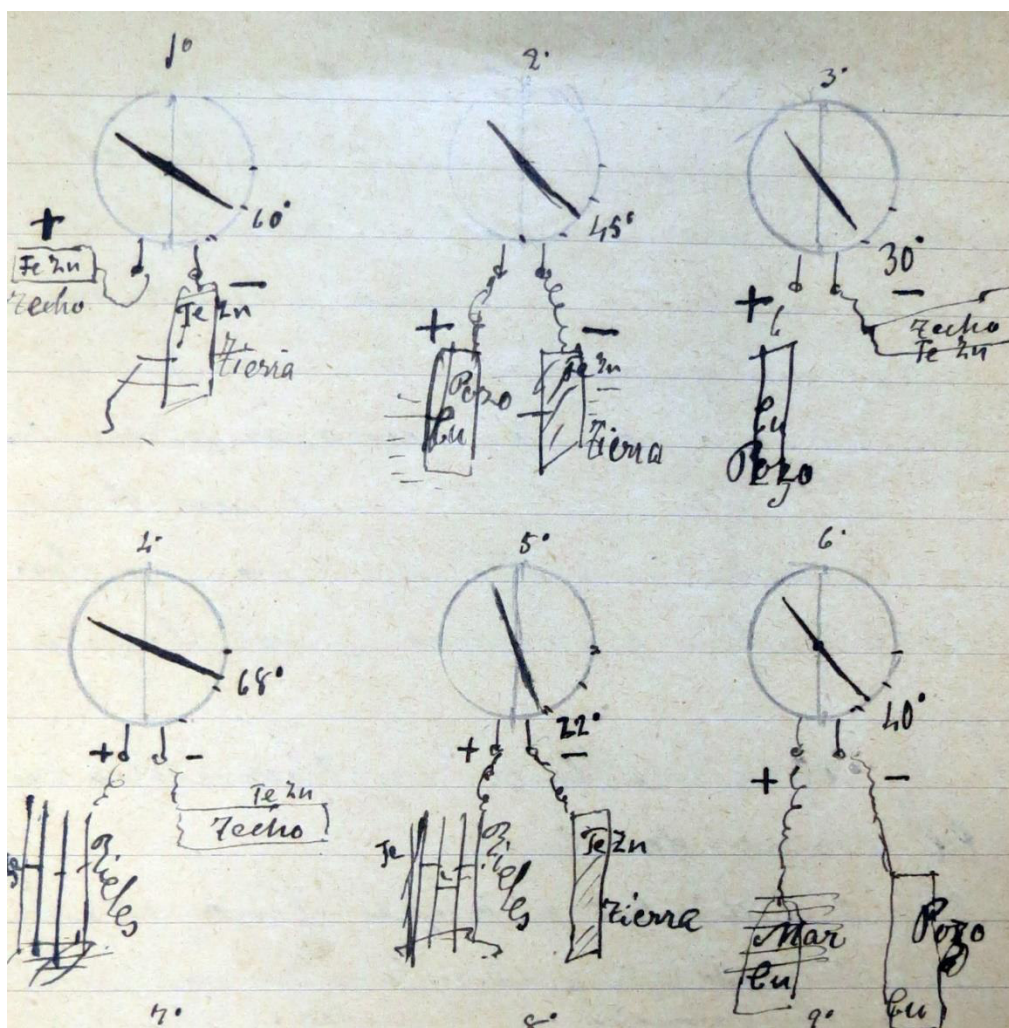 1º
60°
+
Fe Zn
Techo
Fe Zn
−
Tierra
2º
45°
+
−
Pozo
Cu
Fe Zn
Tierra
3º
30°
+
−
Techo
Fe Zn
Cu
Pozo
4º
68°
+ −
Rieles
Fe Zn
Techo
5º
22°
+ −
Fe
Rieles
Fe Zn
Tierra
6º
40°
+ −
Mar
Cu
Pozo
Cu
7º
8º
9º